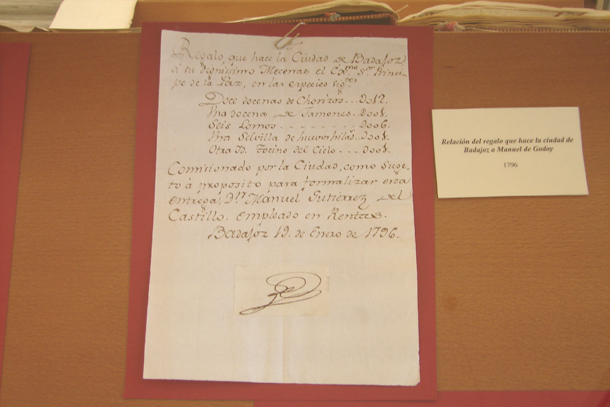 Regalo, que hace la Ciudad de Badajoz
á su dignisimo Mecenas el Exmo. Sor. Princi-
pe de la Paz, en las especies sigtes.
Doce docenas de Chorizos... D012.
Una docena de Jamones.. D001.
Seis Lomos. - - - - - - - D006.
Una Silvilla de huevos hilados.. D001.
Otra Yd. Tocino del Cielo... D001.
Comisionado por la Ciudad, como suge-
to á proposito para formalizar esta
entrega, Dn. Manuel Gutierrez del
Castillo. empleado en Rentas.
Badajoz 19. de Enero de 1796.
Relación del regalo que hace la ciudad de
Badajoz a Manuel de Godoy
1796